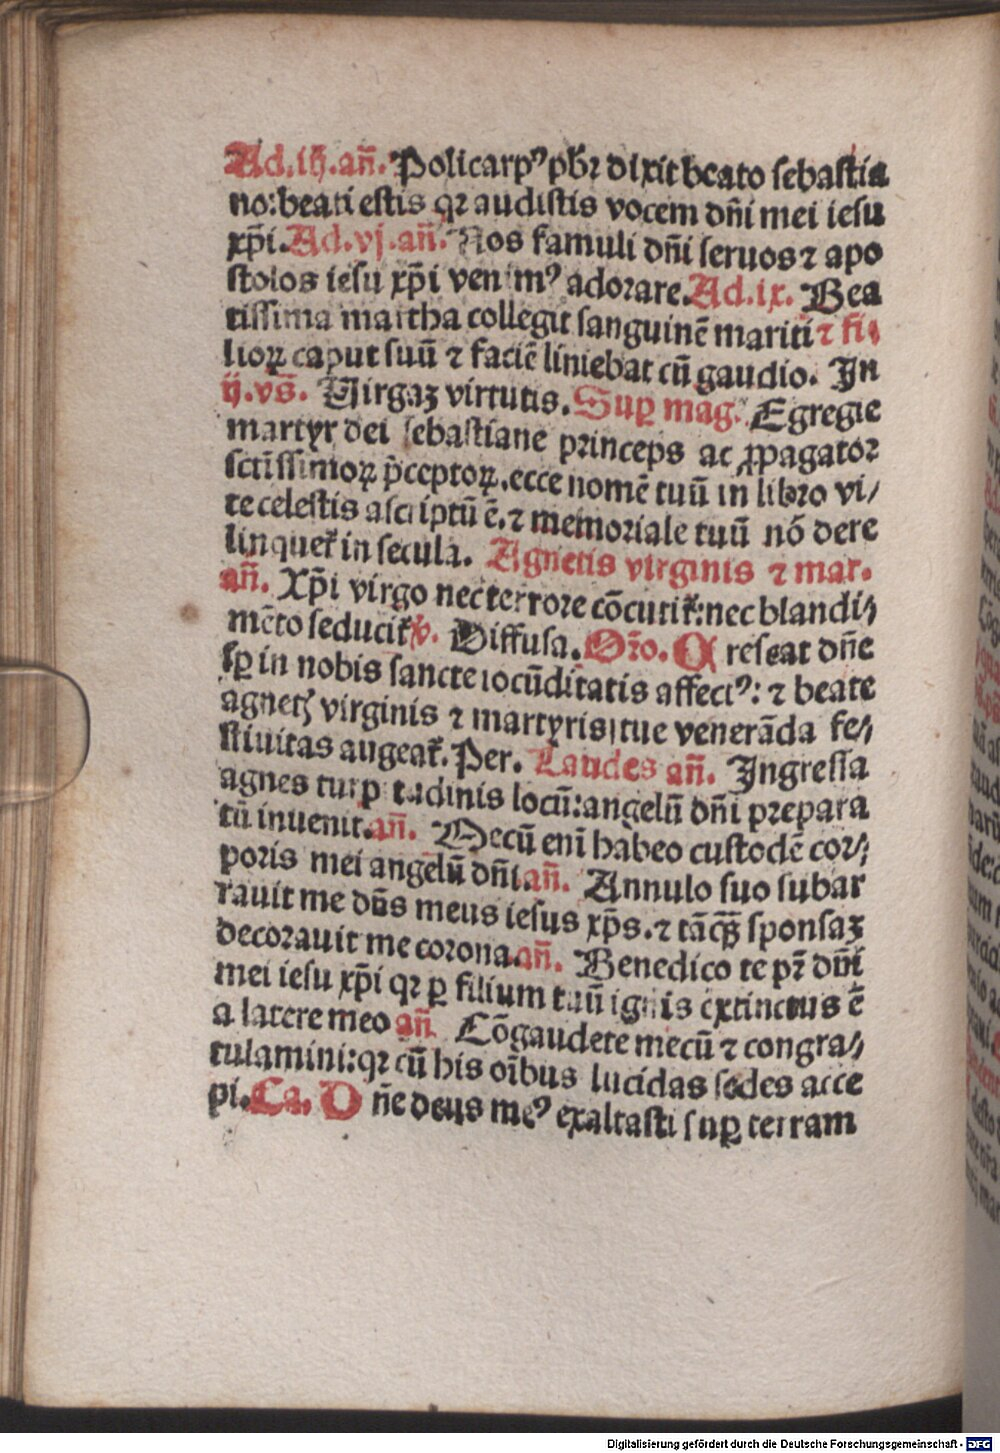 Ad.iij.an̄. Policarpꝰ pb̄r dixit beato sebastia
no:beati estis qꝛ audistis vocem dn̄i mei iesu
xp̄i.Ad.vj.an̄. Nos famuli dn̄i seruos ⁊ apo
stolos iesu xp̄i venimꝰ adorare.Ad.ix. Bea
tissima martha collegit sanguinē mariti ⁊ fi⸗
lioꝝ caput suū ⁊ faciē liniebat cū gaudio. In
ij.vs̄. Uirgaꝫ virtutis. Suꝑ mag. Egregie
martyr dei sebastiane princeps ac ꝓpagator
sctīssimoꝝ p̄ceptoꝝ.ecce nomē tuū in libro vi⸗
te celestis ascriptū ē.⁊ memoriale tuū nō dere
linquet᷑ in secula. Agnetis virginis ⁊ mar.
an̄. Xp̄i virgo nec terrore cōcutit᷑:nec blandi⸗
mēto seducit᷑ ℣. Diffusa. Or̄o. C reseat dn̄e
sꝑ in nobis sancte iocūditatis affectꝰ: ⁊ beate
agnetꝭ virginis ⁊ martyris tue venerāda fe⸗
stiuitas augeat᷑. Per. Laudes an̄. Ingressa
agnes turpitudinis locū:angelū dn̄i prepara
tū inuenit.an̄. Mecū enī habeo custodē cor⸗
poris mei angelū dn̄i.an̄. Annulo suo subar
rauit me dn̄s meus iesus xp̄s.⁊ tāqꝫ sponsaꝫ
decorauit me corona.an̄. Benedico te pr̄ dn̄i
mei iesu xp̄i qꝛ ꝑ filium tuū ignis extinctus ē
a latere meo an̄ Cōgaudete mecū ⁊ congra⸗
tulamini:qꝛ cū his oībus lucidas sedes acce
pi.Ca. D n̄e deus meꝰ exaltasti suꝑ terram
Digitalisierung gefördert durch die Deutsche Forschungsgemeinschaft - DFG